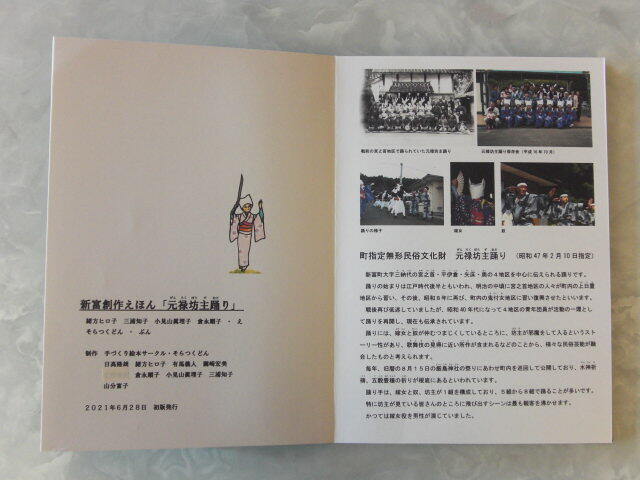 新富創作えほん「元禄坊主踊り」
げんろくぼうずおどり
緒方ヒロ子 三浦知子 小見山眞理子 倉永順子 ・ え
そらつくどん ・ ぶん
制作 手づくり絵本サークル・そらつくどん
日高隆綱 緒方ヒロ子 有馬義人 圖師宏美
倉永順子 小見山眞理子 三浦知子
山分富子
2021年6月28日 初版発行
戦前の宮之首地区で踊られていた元禄坊主踊り
元禄坊主踊り保存会（平成16年10月）
踊りの様子
嫁女
奴
町指定無形民俗文化財 元禄坊主踊り （昭和47年2月10日指定）
げんろくぼうずおどり
新富町大字三納代の宮之首・平伊倉・矢床・奥の4地区を中心に伝えられる踊りです。
踊りの始まりは江戸時代後半ともいわれ、明治の中頃に宮之首地区の人々が町内の上日置
地区から習い、その後、昭和8年に再び、町内の鬼付女地区に習い復興させたといいます。
戦後再び低迷していましたが、昭和40年代になって4地区の青年団員が活動の一環とし
て踊りを再開し、現在も伝承されています。
踊りには、嫁女と奴が仲むつまじくしているところに、坊主が邪魔をして入るというスト
ーリー性があり、歌舞伎の見得に近い所作が含まれるなどのことから、様々な民俗芸能が融
合したものと考えられます。
毎年、旧暦の8月15日の飯島神社の祭りにあわせ町内を巡回して公開しており、水神祈
祷、五穀豊穣の祈りが根底にあるといわれています。
踊り手は、嫁女と奴、坊主が1組を構成しており、5組から8組で踊ることが多いです。
特に坊主が見ている皆さんのところに飛び出すシーンは最も観客を沸かせます。
かつては嫁女役を男性が演じていました。